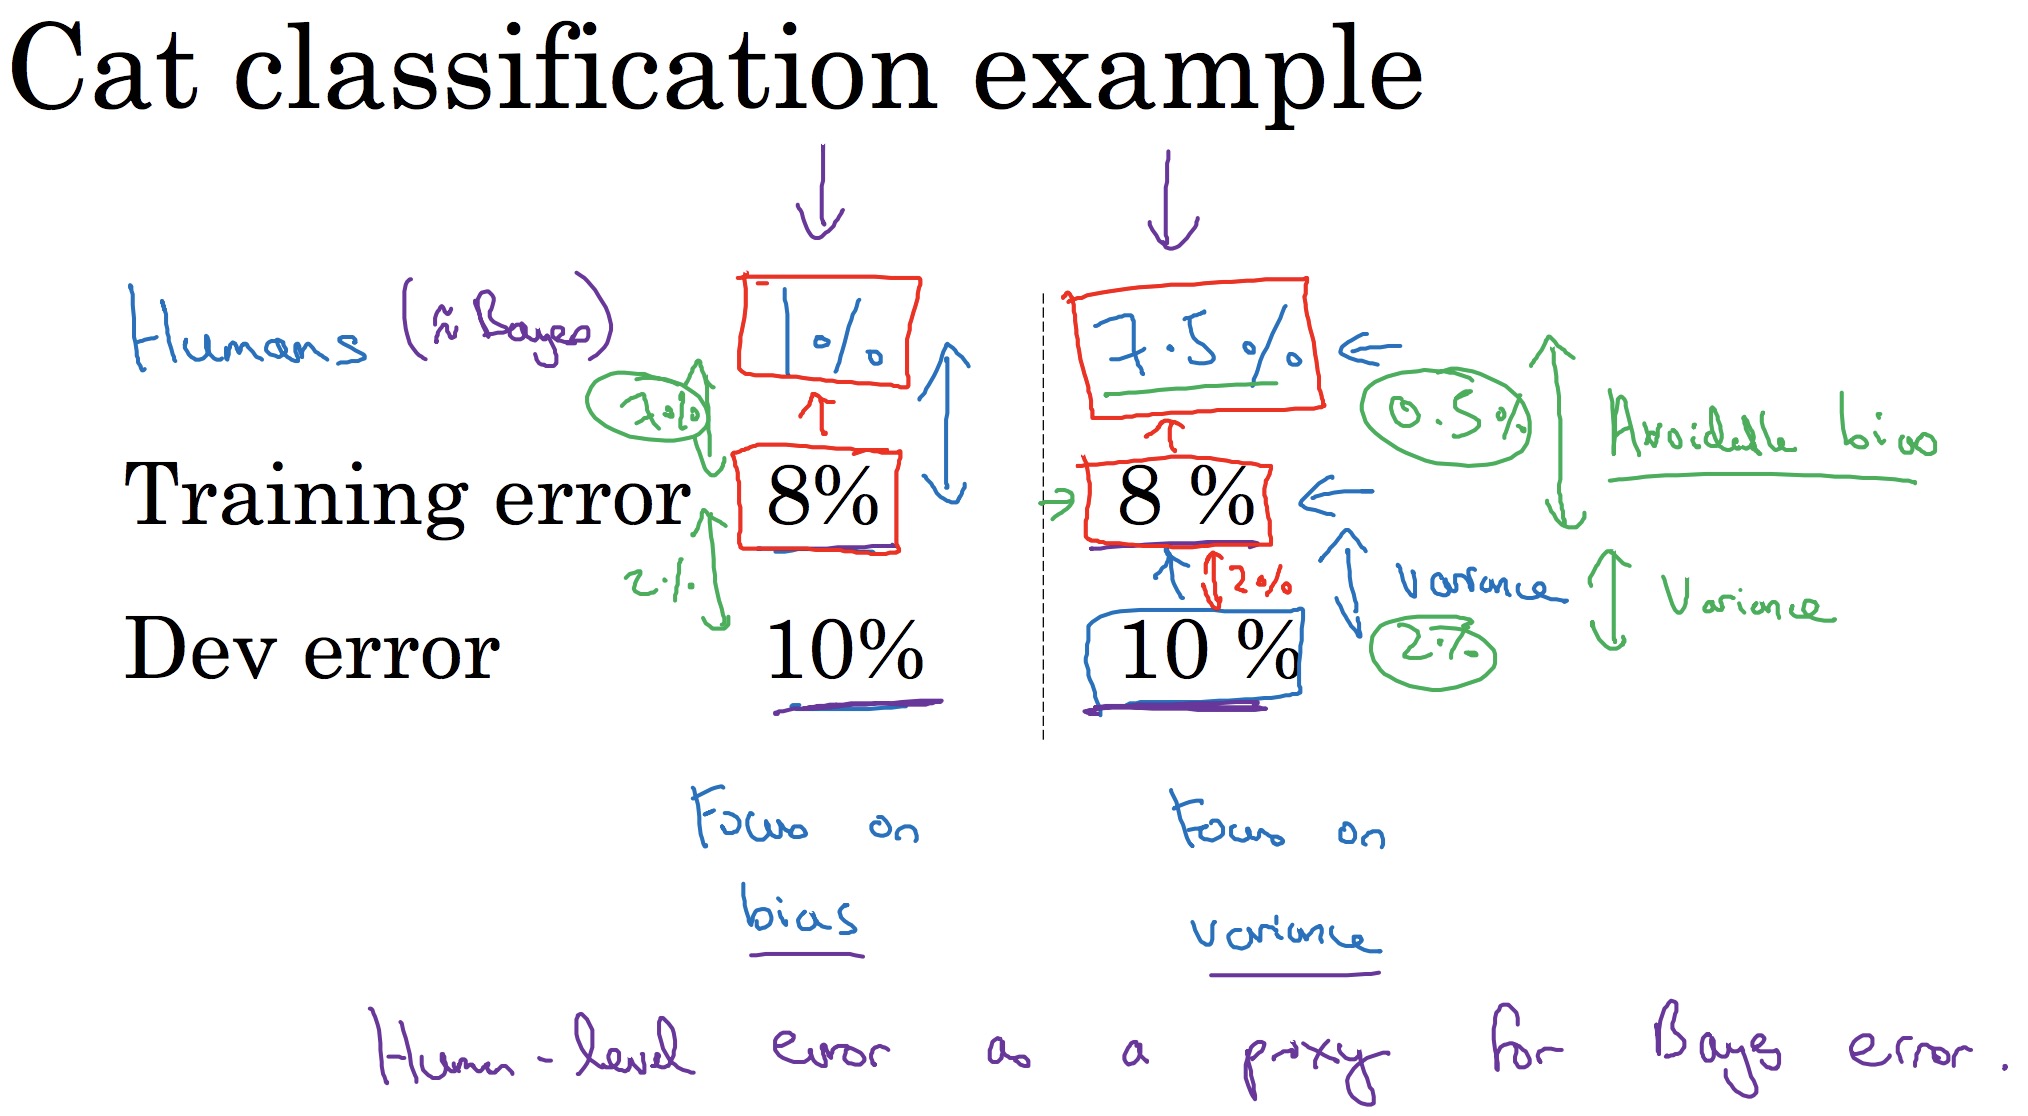 Cat classification example
Humans (≈ Bayes) 1% 7.5%
7% 0.5% Avoidable bias
Training error 8% 8 %
2% 2% variance Variance
Dev error 10% 10 % 2%
Focus on Focus on
bias variance
Human-level error as a proxy for Bayes error.